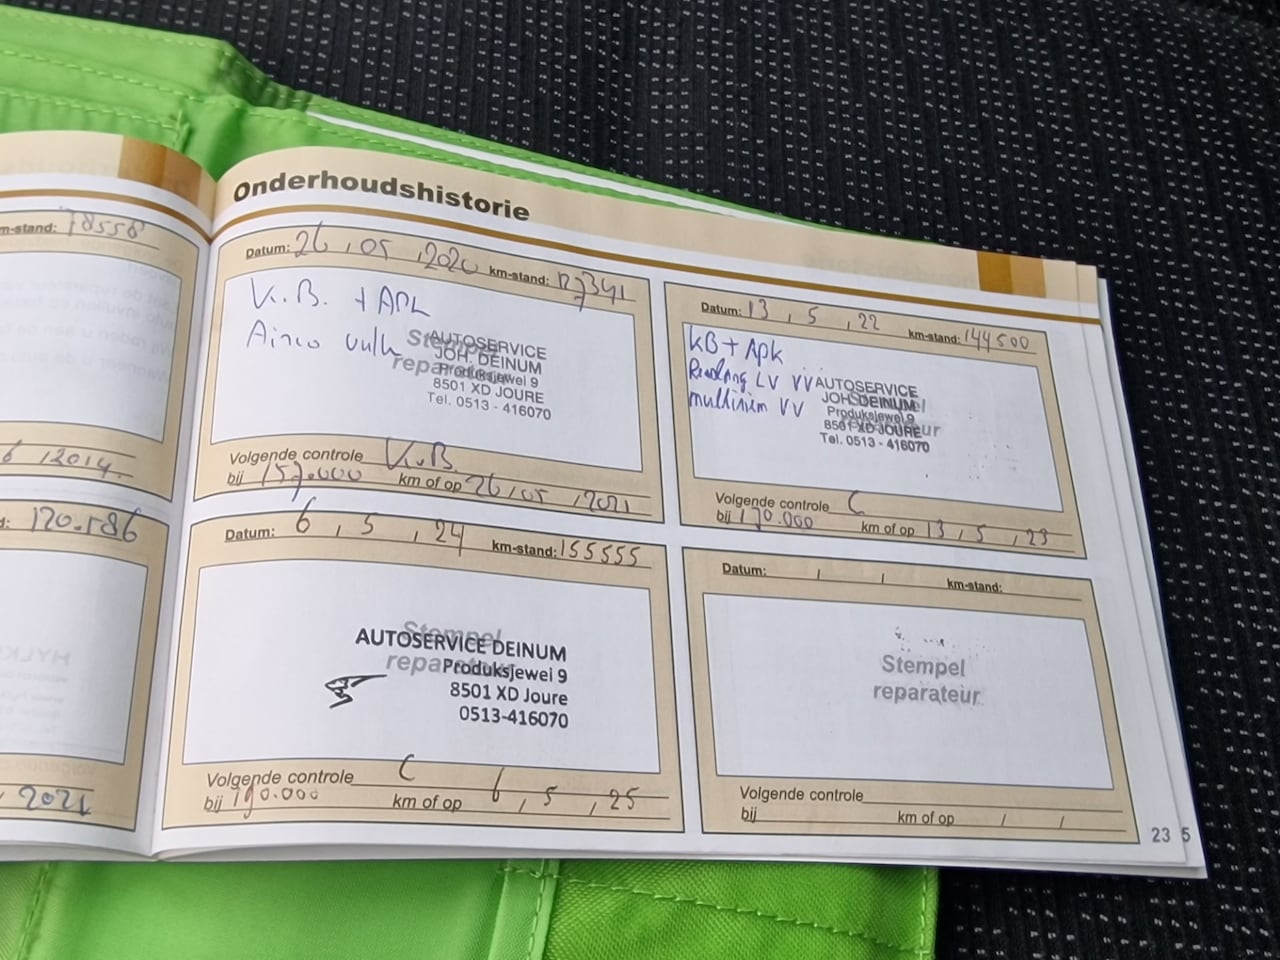 Onderhoudshistorie
m-stand: 78558
6 , 2014
d: 120.586
, 2021
Datum: 26 , 05 , 2020 km-stand: 127341
K.B. + APK
Airco vulk
Stempel
reparateur
AUTOSERVICE
JOH. DEINUM
Produksjewei 9
8501 XD JOURE
Tel. 0513 - 416070
Volgende controle K.B
bij 157.000 km of op 26 , 05 , 2021
Datum: 13 , 5 , 22 km-stand: 144500
KB + Apk
LV VV
VV
Stempel
reparateur
AUTOSERVICE
JOH. DEINUM
Produksjewei 9
8501 XD JOURE
Tel. 0513 - 416070
Volgende controle C
bij 170.000 km of op 13 , 5 , 23
Datum: 6 , 5 , 24 km-stand: 155555
Stempel
reparateur
AUTOSERVICE DEINUM
Produksjewei 9
8501 XD Joure
0513-416070
Volgende controle C
bij 190.000 km of op 6 , 5 , 25
Datum: / / km-stand:
Stempel
reparateur
Volgende controle
bij km of op / /
23 5